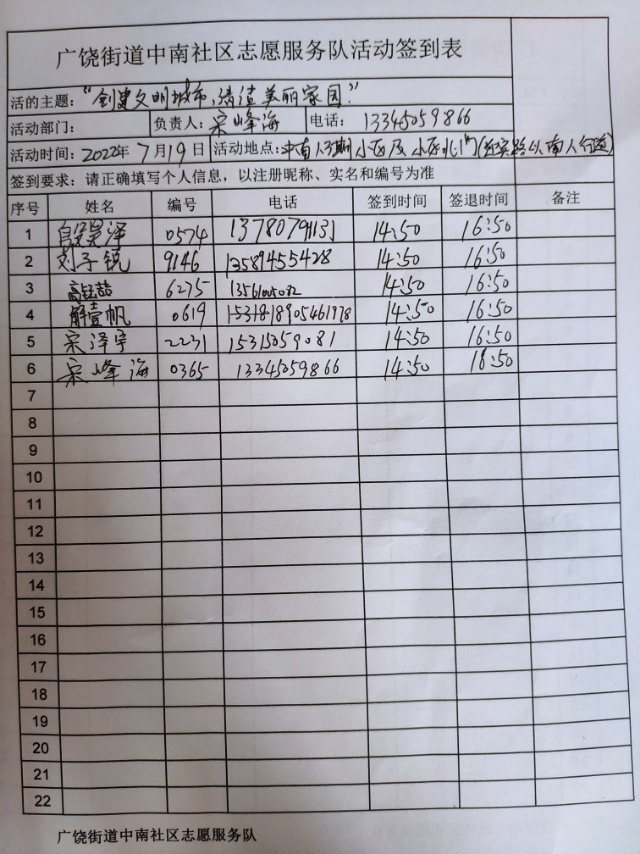 广饶街道中南社区志愿服务队活动签到表
活的主题：“创建文明城市，清洁美丽家园”
活动部门： 负责人：宋峰海 电话：13345059866
活动时间：2022年7月19日 活动地点：中南 小区及小区北门
签到要求：请正确填写个人信息，以注册昵称、实名和编号为准
序号 姓名 编号 电话 签到时间 签退时间 备注
1 段昊泽 0574 14:50 16:50
2 刘子锐 9146 13589455428 14:50 16:50
3 6275 14:50 16:50
4 解壹帆 0619 14:50 16:50
5 宋泽宇 2231 15315059081 14:50 16:50
6 宋峰海 0365 13345059866 14:50 16:50
7
8
9
10
11
12
13
14
15
16
17
18
19
20
21
22
广饶街道中南社区志愿服务队